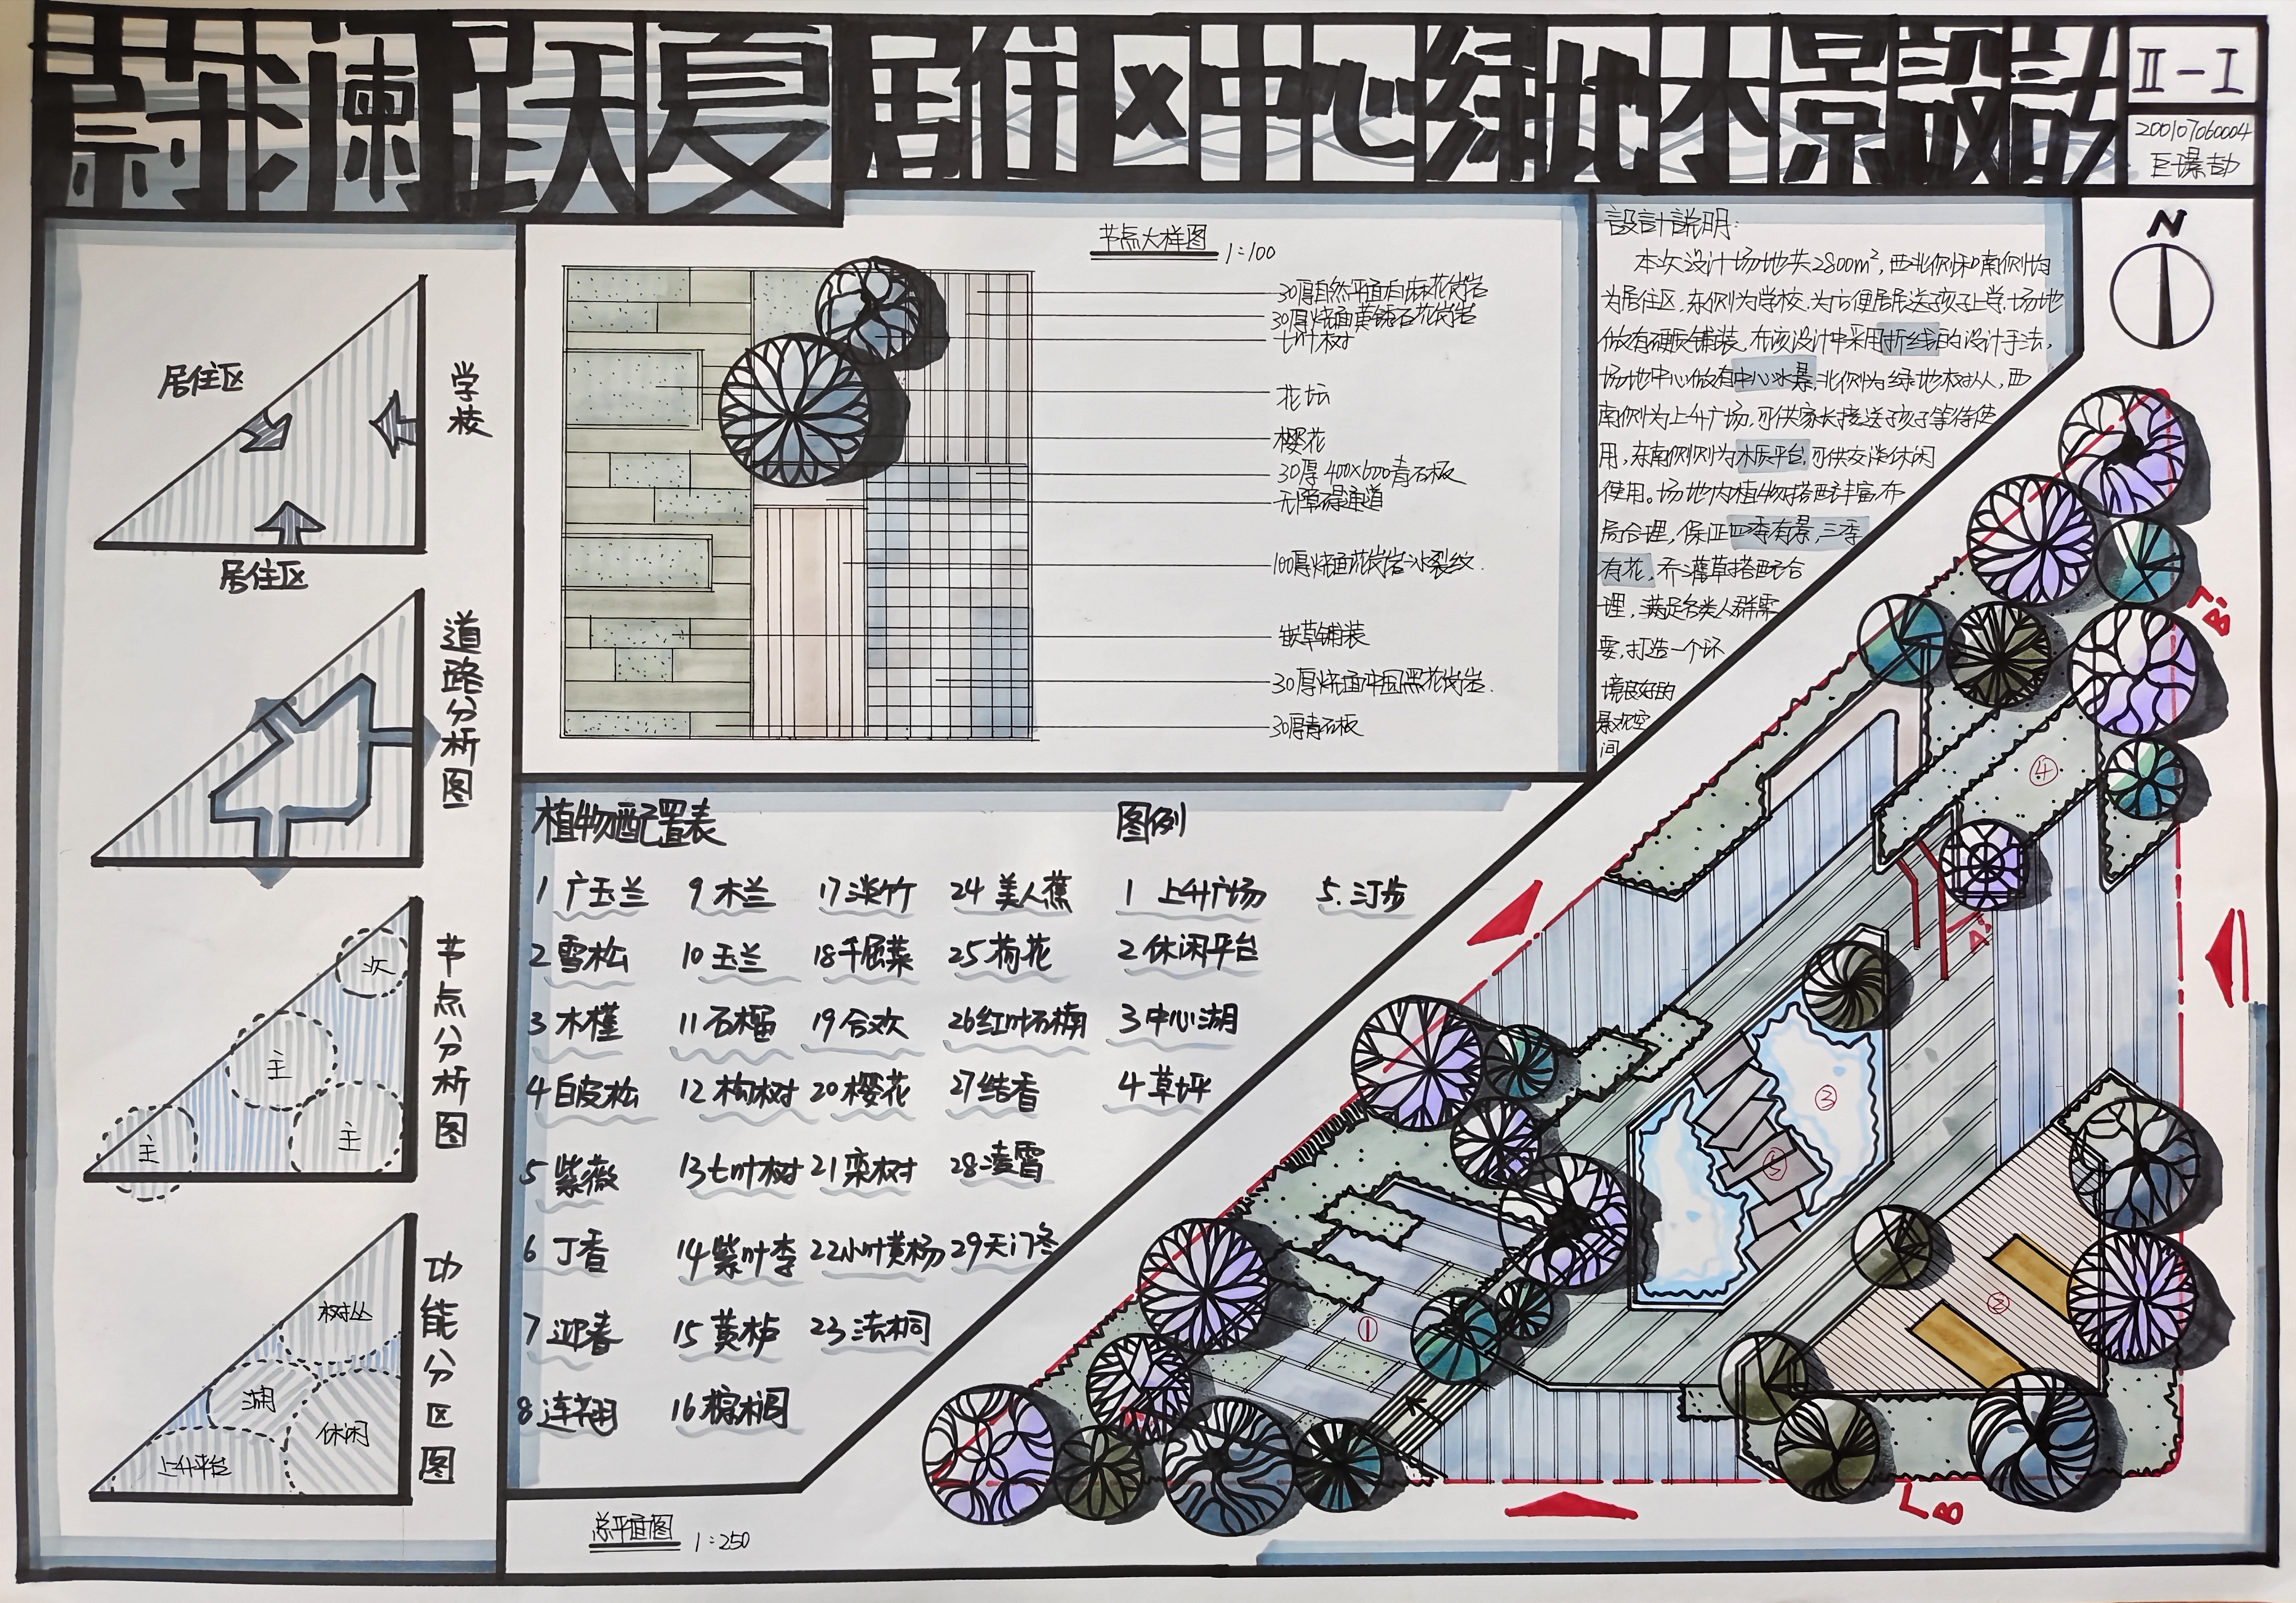 蔚澜跃夏居住区中心绿地木景設計
Ⅱ-Ⅰ
200107060004
居住区
学校
居住区
道路分析图
节点分析图
次
主
主
主
功能分区图
树丛
湖
休闲
上升平台
节点大样图 1:100
30厚自然平面芝麻花岗岩
30厚烧面黄锈石花岗岩
七叶树
花坛
樱花
30厚400×600青石板
无障碍通道
100厚烧面花岗岩冰裂纹
嵌草铺装
30厚烧面中国黑花岗岩
30厚青石板
設計説明:
本次设计场地共2800m²,西北侧和南侧均
为居住区,东侧为学校.为方便居民送孩子上学,场地
做有硬质铺装,在该设计中采用折线的设计手法,
场地中心做有中心水景,北侧为绿地树丛,西
南侧为上升广场,可供家长接送孩子等待使
用,东南侧则为木质平台,可供交谈休闲
使用。场地内植物搭配丰富,布
局合理,保证四季有景,三季
有花,乔灌草搭配合
理,满足各类人群需
要,打造一个环
境良好的
景观空
间
N
植物配置表
1 广玉兰 9 木兰 17 淡竹 24 美人蕉
2 雪松 10 玉兰 18 千屈菜 25 荷花
3 木槿 11 石榴 19 合欢 26 红叶石楠
4 白皮松 12 构树 20 樱花 27 结香
5 紫薇 13 七叶树 21 栾树 28 凌霄
6 丁香 14 紫叶李 22 小叶黄杨 29 天门冬
7 迎春 15 黄栌 23 法桐
8 连翘 16 棕榈
图例
1 上升广场 5. 汀步
2 休闲平台
3 中心湖
4 草坪
B'
④
A'
③
⑤
②
①
B
总平面图 1:250